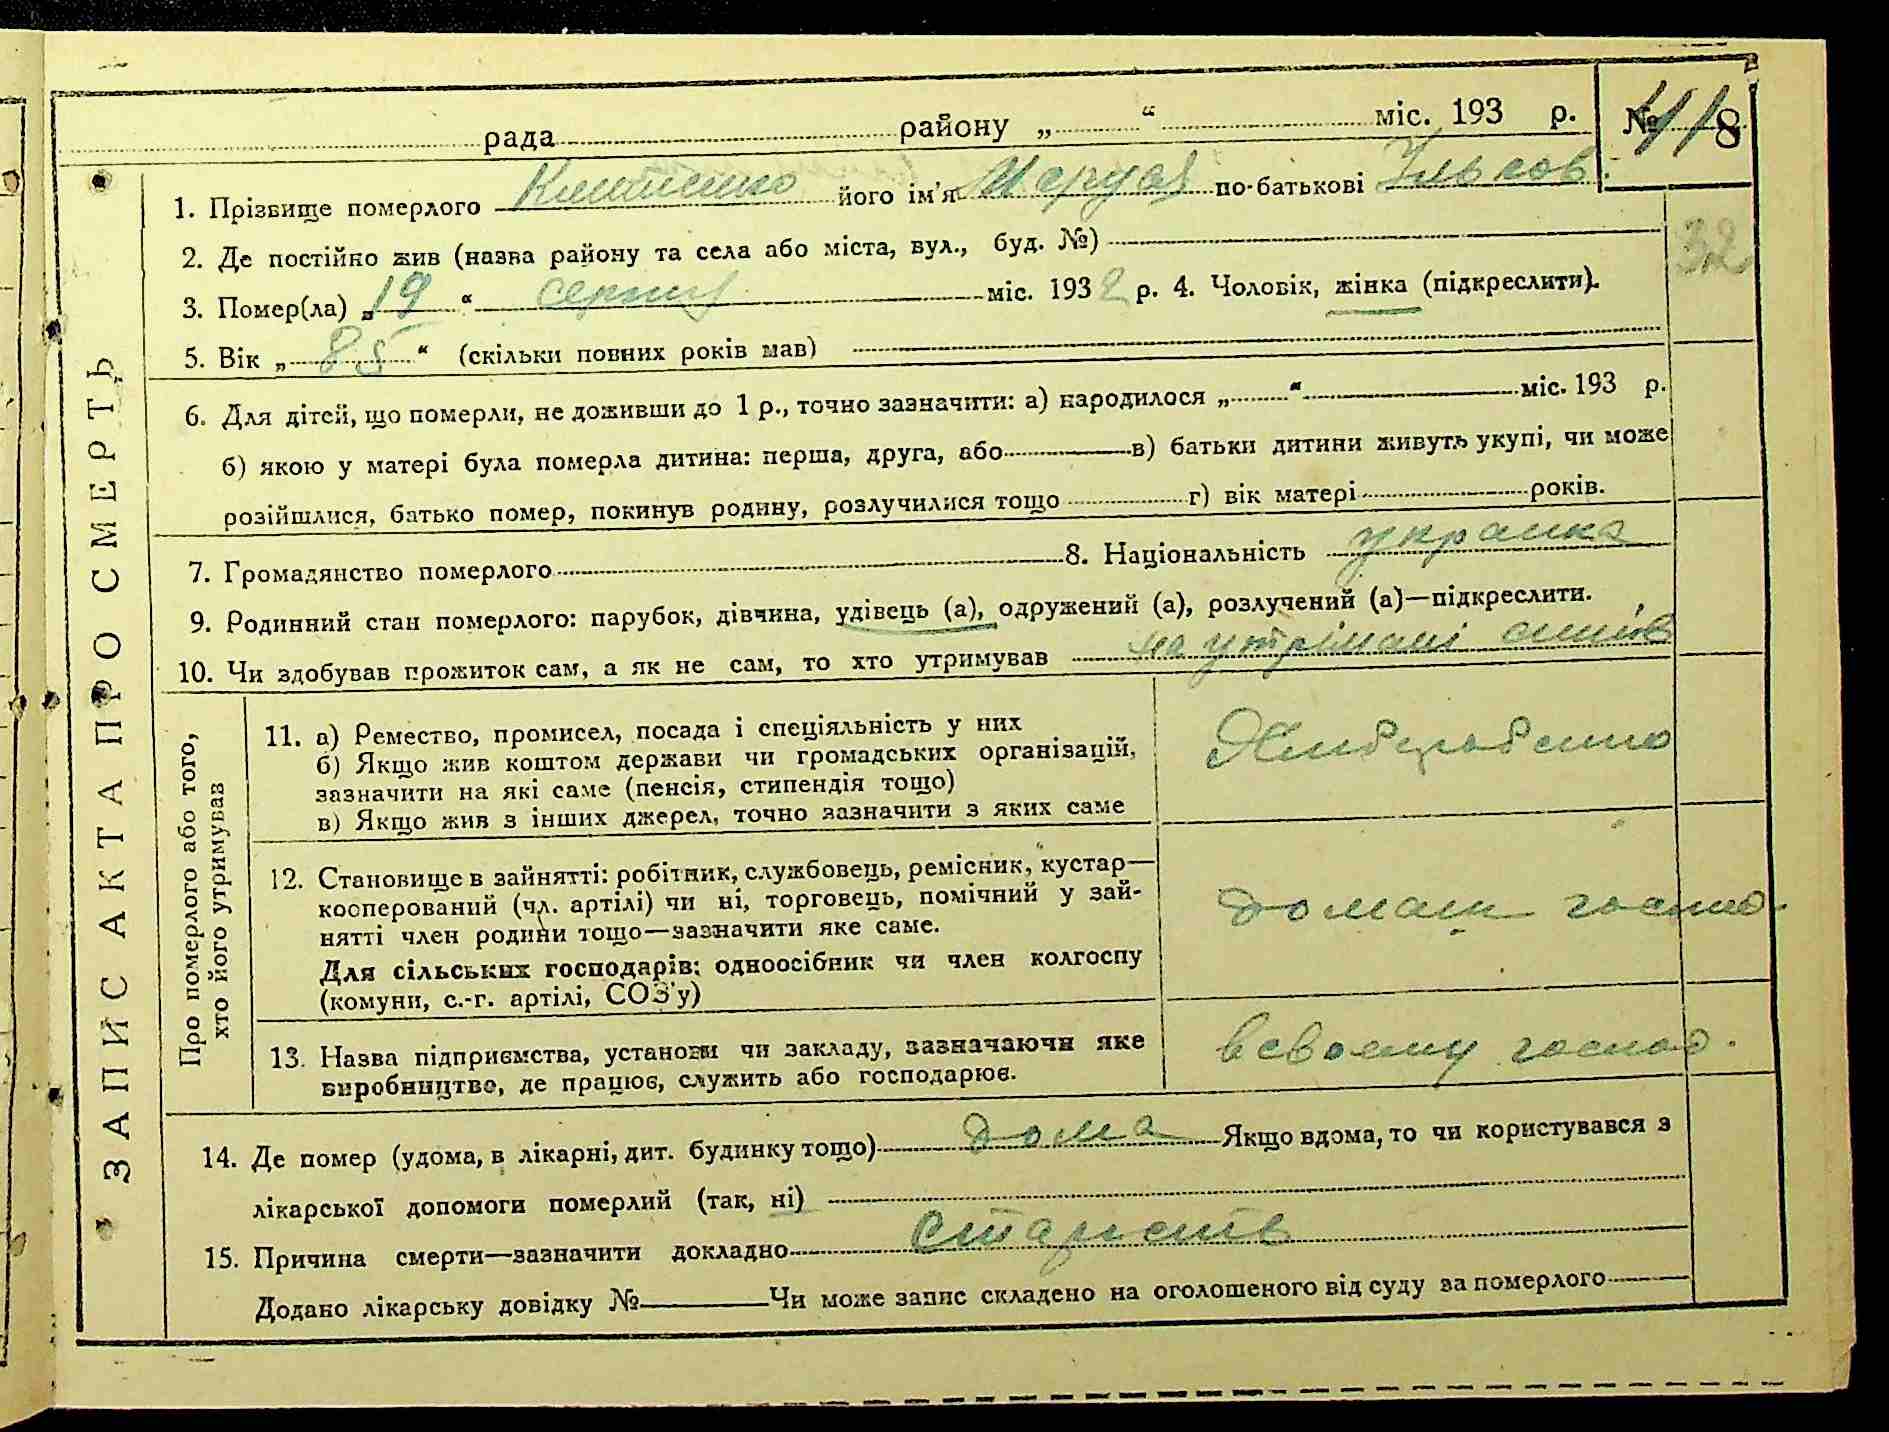 рада районну „ “ міс. 193 р. № 41/8
1. Прізвище померлого його ім'я по-батькові
2. Де постійно жив (назва району та села або міста, вул., буд. №)
3. Помер(ла) „19“ серпня міс. 1932 р. 4. Чоловік, жінка (підкреслити).
32
5. Вік „85“ (скільки повних років мав)
6. Для дітей, що померли, не доживши до 1 р., точно зазначити: а) народилося „ “ міс. 193 р.
б) якою у матері була померла дитина: перша, друга, або в) батьки дитини живуть укупі, чи може
розійшлися, батько помер, покинув родину, розлучилися тощо г) вік матері років.
7. Громадянство померлого 8. Національність украинка
9. Родинний стан померлого: парубок, дівчина, удівець (а), одружений (а), розлучений (а)—підкреслити.
10. Чи здобував прожиток сам, а як не сам, то хто утримував на утрімані синів
ЗАПИС АКТА ПРО СМЕРТЬ
Про померлого або того,
хто його утримував
11. а) Ремество, промисел, посада і спеціяльність у них
б) Якщо жив коштом держави чи громадських організацій,
зазначити на які саме (пенсія, стипендія тощо)
в) Якщо жив з інших джерел, точно зазначити з яких саме
12. Становище в зайнятті: робітник, службовець, ремісник, кустар—
кооперований (чл. артілі) чи ні, торговець, помічний у зай-
нятті член родини тощо—зазначити яке саме.
Для сільських господарів: одноосібник чи член колгоспу
(комуни, с.-г. артілі, СОЗ'у)
13. Назва підприємства, установи чи закладу, зазначаючи яке
виробництво, де працює, служить або господарює.
в своему господ.
14. Де помер (удома, в лікарні, дит. будинку тощо) дома Якщо вдома, то чи користувався з
лікарської допомоги померлий (так, ні)
15. Причина смерти—зазначити докладно старість
Додано лікарську довідку № Чи може запис складено на оголошеного від суду за померлого